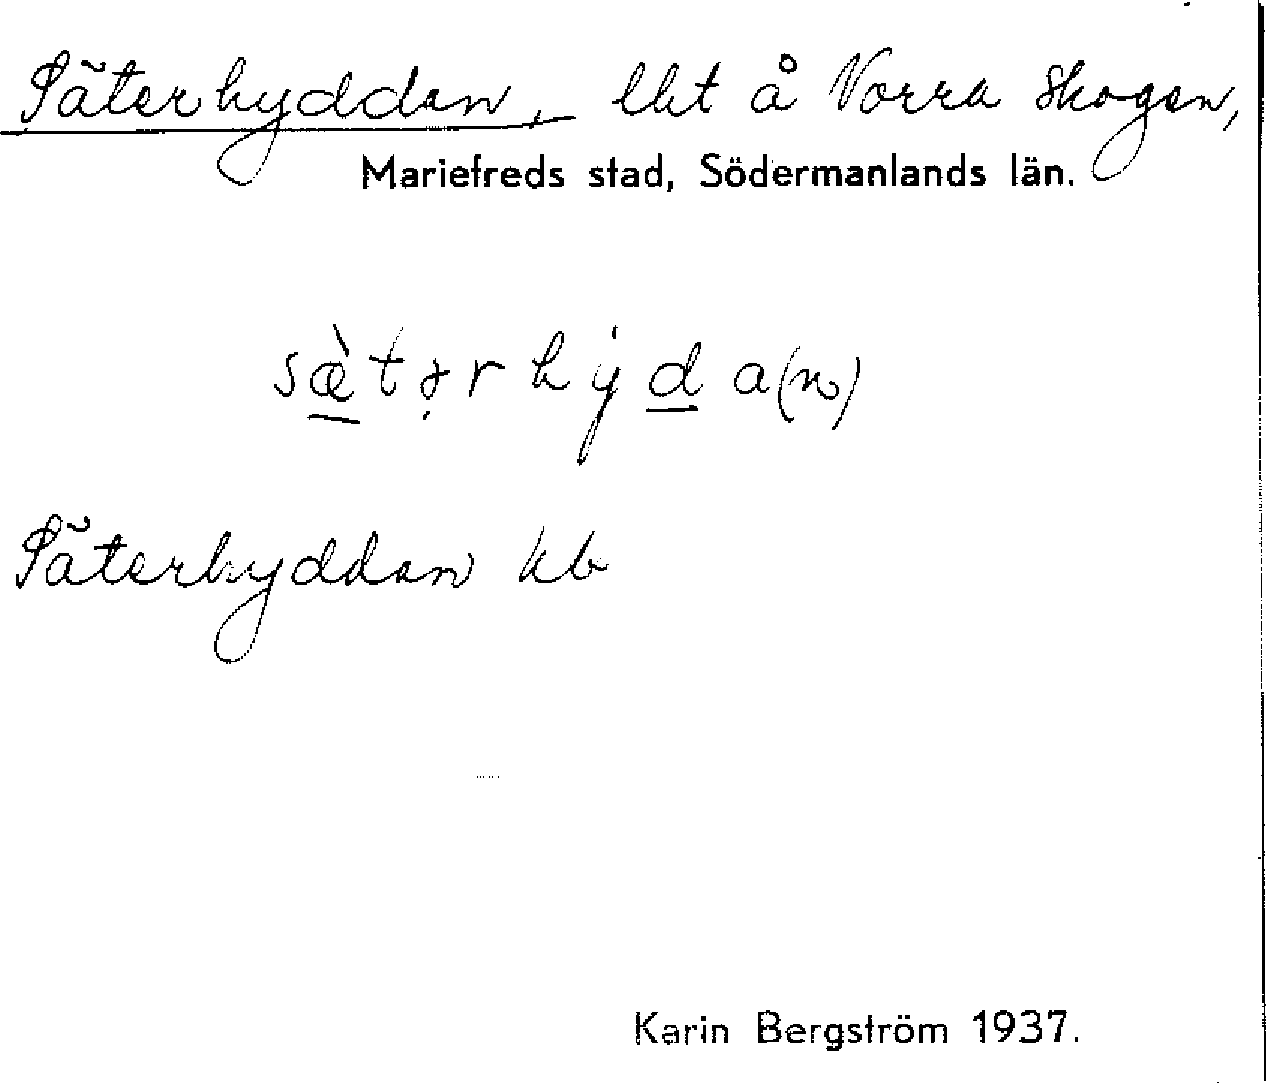 Säterhyddan, lht å Norra Skogen,
Mariefreds stad, Södermanlands län.
sæ̀tərhyda(n)
Säterhyddan kb
Karin Bergström 1937.